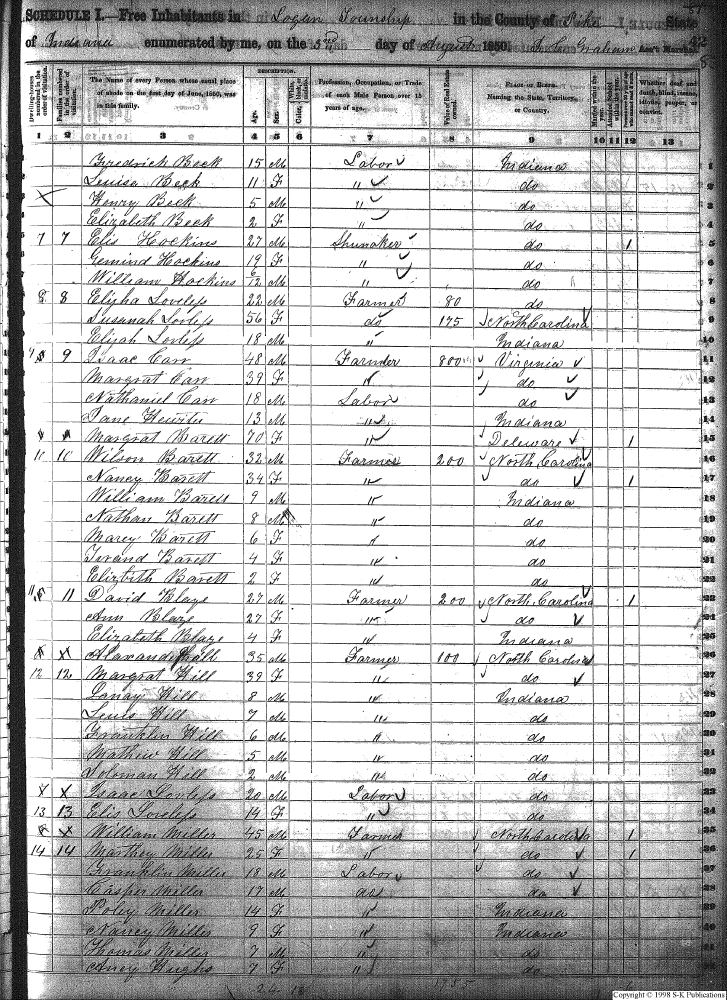 SCHEDULE I.—Free Inhabitants in Logan Township in the County of Pike State
of Indiana enumerated by me, on the 3rd day of August 1850. Graham Ass't Marshal.
Dwelling-houses numbered in the order of visitation.
Families numbered in the order of visitation.
The Name of every Person whose usual place of abode on the first day of June, 1850, was in this family.
DESCRIPTION.
Age.
Sex.
Color,
Profession, Occupation, or Trade of each Male Person over 15 years of age.
Value of Real Estate owned.
PLACE OF BIRTH. Naming the State, Territory, or Country.
Married within the
Attended School
Whether deaf and dumb, blind, insane, idiotic, pauper, or convict.
1 2 3 4 5 6 7 8 9 10 11 12 13
Fredrick Beck 15 M Labor Indiana 1
Louisa Beck 11 F " do 2
Henry Beck 5 M " do 3
Elizabeth Beck 2 F " do 4
7 7 Elis Hockins 27 M Shunaker do 1 5
Hockins 19 F " do 6
William Hockins 6/12 M " do 7
8 8 Elijha Loveless 22 M Farmer 80 do 8
Susanah Lovless 56 F do 175 North Carolina 9
Elijah Lovless 18 M " Indiana 10
9 Isaac Carr 48 M Farmer 800 Virginia 11
Margrat Carr 39 F " do 12
Nathaniel Carr 18 M Labor do 13
Jane 13 M " Indiana 14
Margrat Barett 70 F " Deleware 1 15
10 10 Wilson Barett 32 M Farmer 200 North Carolina 16
Nancy Barett 34 F " do 1 17
William Barett 9 M " Indiana 18
Nathan Barett 8 M " do 19
Marey Barett 6 F " do 20
Barett 4 F " do 21
Elizbith Barett 2 F " do 22
11 David Blaze 27 M Farmer 200 North Carolina 1 23
Ann Blaze 27 F " do 24
Elizabeth Blaze 4 F " Indiana 25
X X Hill 35 M Farmer 100 North Carolina 26
12 12 Margrat Hill 39 F " do 27
Hill 8 M " Indiana 28
Lewis Hill 7 M " do 29
Franklin Hill 6 M " do 30
Mathew Hill 5 M " do 31
Soloman Hill 2 M " do 32
X X Isaac Lovless 20 M Labor do 33
13 13 Elis Loveless 14 F " do 34
X X William Miller 45 M Farmer North Carolina 1 35
14 14 Marthey Miller 25 F " do 1 36
Franklin Miller 18 M Labor do 37
Casper Miller 17 M do do 38
Poley Miller 14 F " Indiana 39
Nancy Miller 9 F " Indiana 40
Thomas Miller 7 M " do 41
Hughs 7 F " do 42
Copyright © 1998 S-K Publications